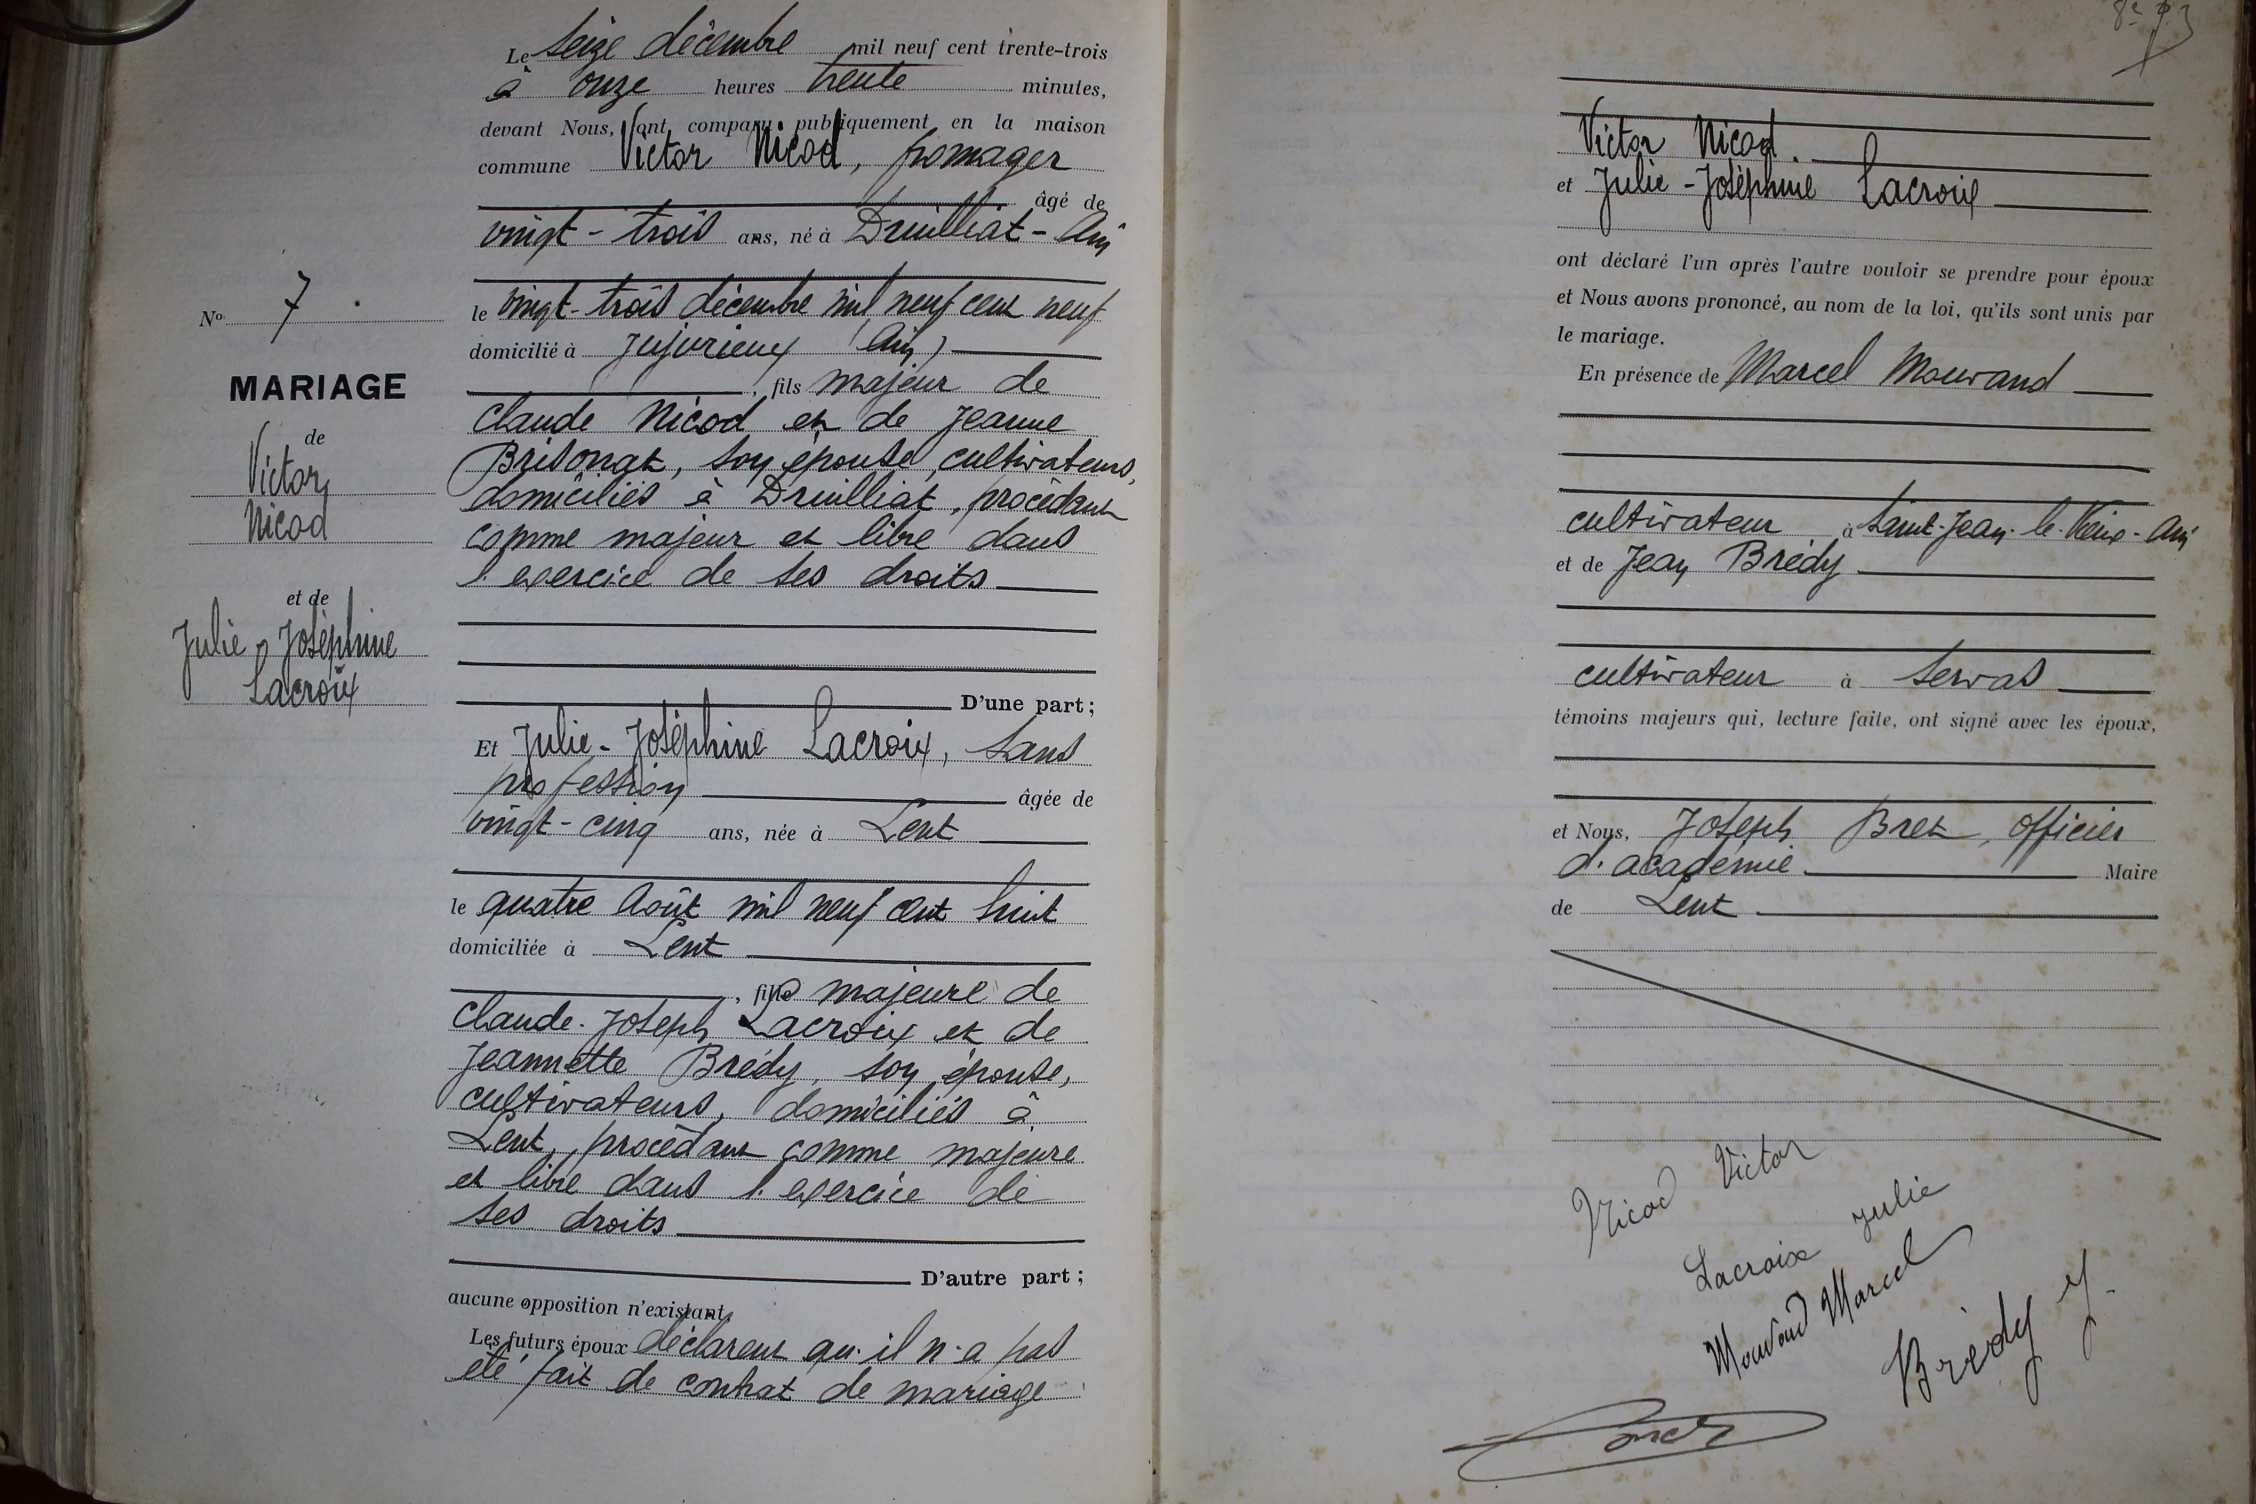 Le seize décembre mil neuf cent trente-trois
à onze heures trente minutes,
devant Nous, ont comparu publiquement en la maison
commune Victor Nicod, fromager
âgé de
vingt-trois ans, né à Druilliat - Ain
le vingt-trois décembre mil neuf cent neuf
domicilié à Jujurieux (Ain)
, fils majeur de
Claude Nicod et de Jeanne
Brisonat, son épouse, cultivateurs,
domiciliés à Druilliat, procédant
comme majeur et libre dans
l'exercice de ses droits
D'une part;
Et Julie-Joséphine Lacroix, sans
profession âgée de
vingt-cinq ans, née à Lent
le quatre Août mil neuf cent huit
domiciliée à Lent
, fille majeure de
Claude-Joseph Lacroix et de
Jeannette Brédy, son épouse,
cultivateurs, domiciliés à
Lent, procédant comme majeure
et libre dans l'exercice de
ses droits
D'autre part;
aucune opposition n'existant
Les futurs époux déclarent qu'il n'a pas
été fait de contrat de mariage
No 7.
MARIAGE
de
Victor
Nicod
et de
Julie-Joséphine
Lacroix
Victor Nicod.
et Julie-Joséphine Lacroix
ont déclaré l'un après l'autre vouloir se prendre pour époux
et Nous avons prononcé, au nom de la loi, qu'ils sont unis par
le mariage.
En présence de Marcel Mouvand
cultivateur à Saint-Jean-le-Vieux-Ain
et de Jean Brédy
cultivateur à Servas
témoins majeurs qui, lecture faite, ont signé avec les époux,
et Nous, Joseph Bret, officier
d'académie Maire
de Lent
Nicod Victor
Lacroix Julie
Mouvand Marcel
Brédy J.